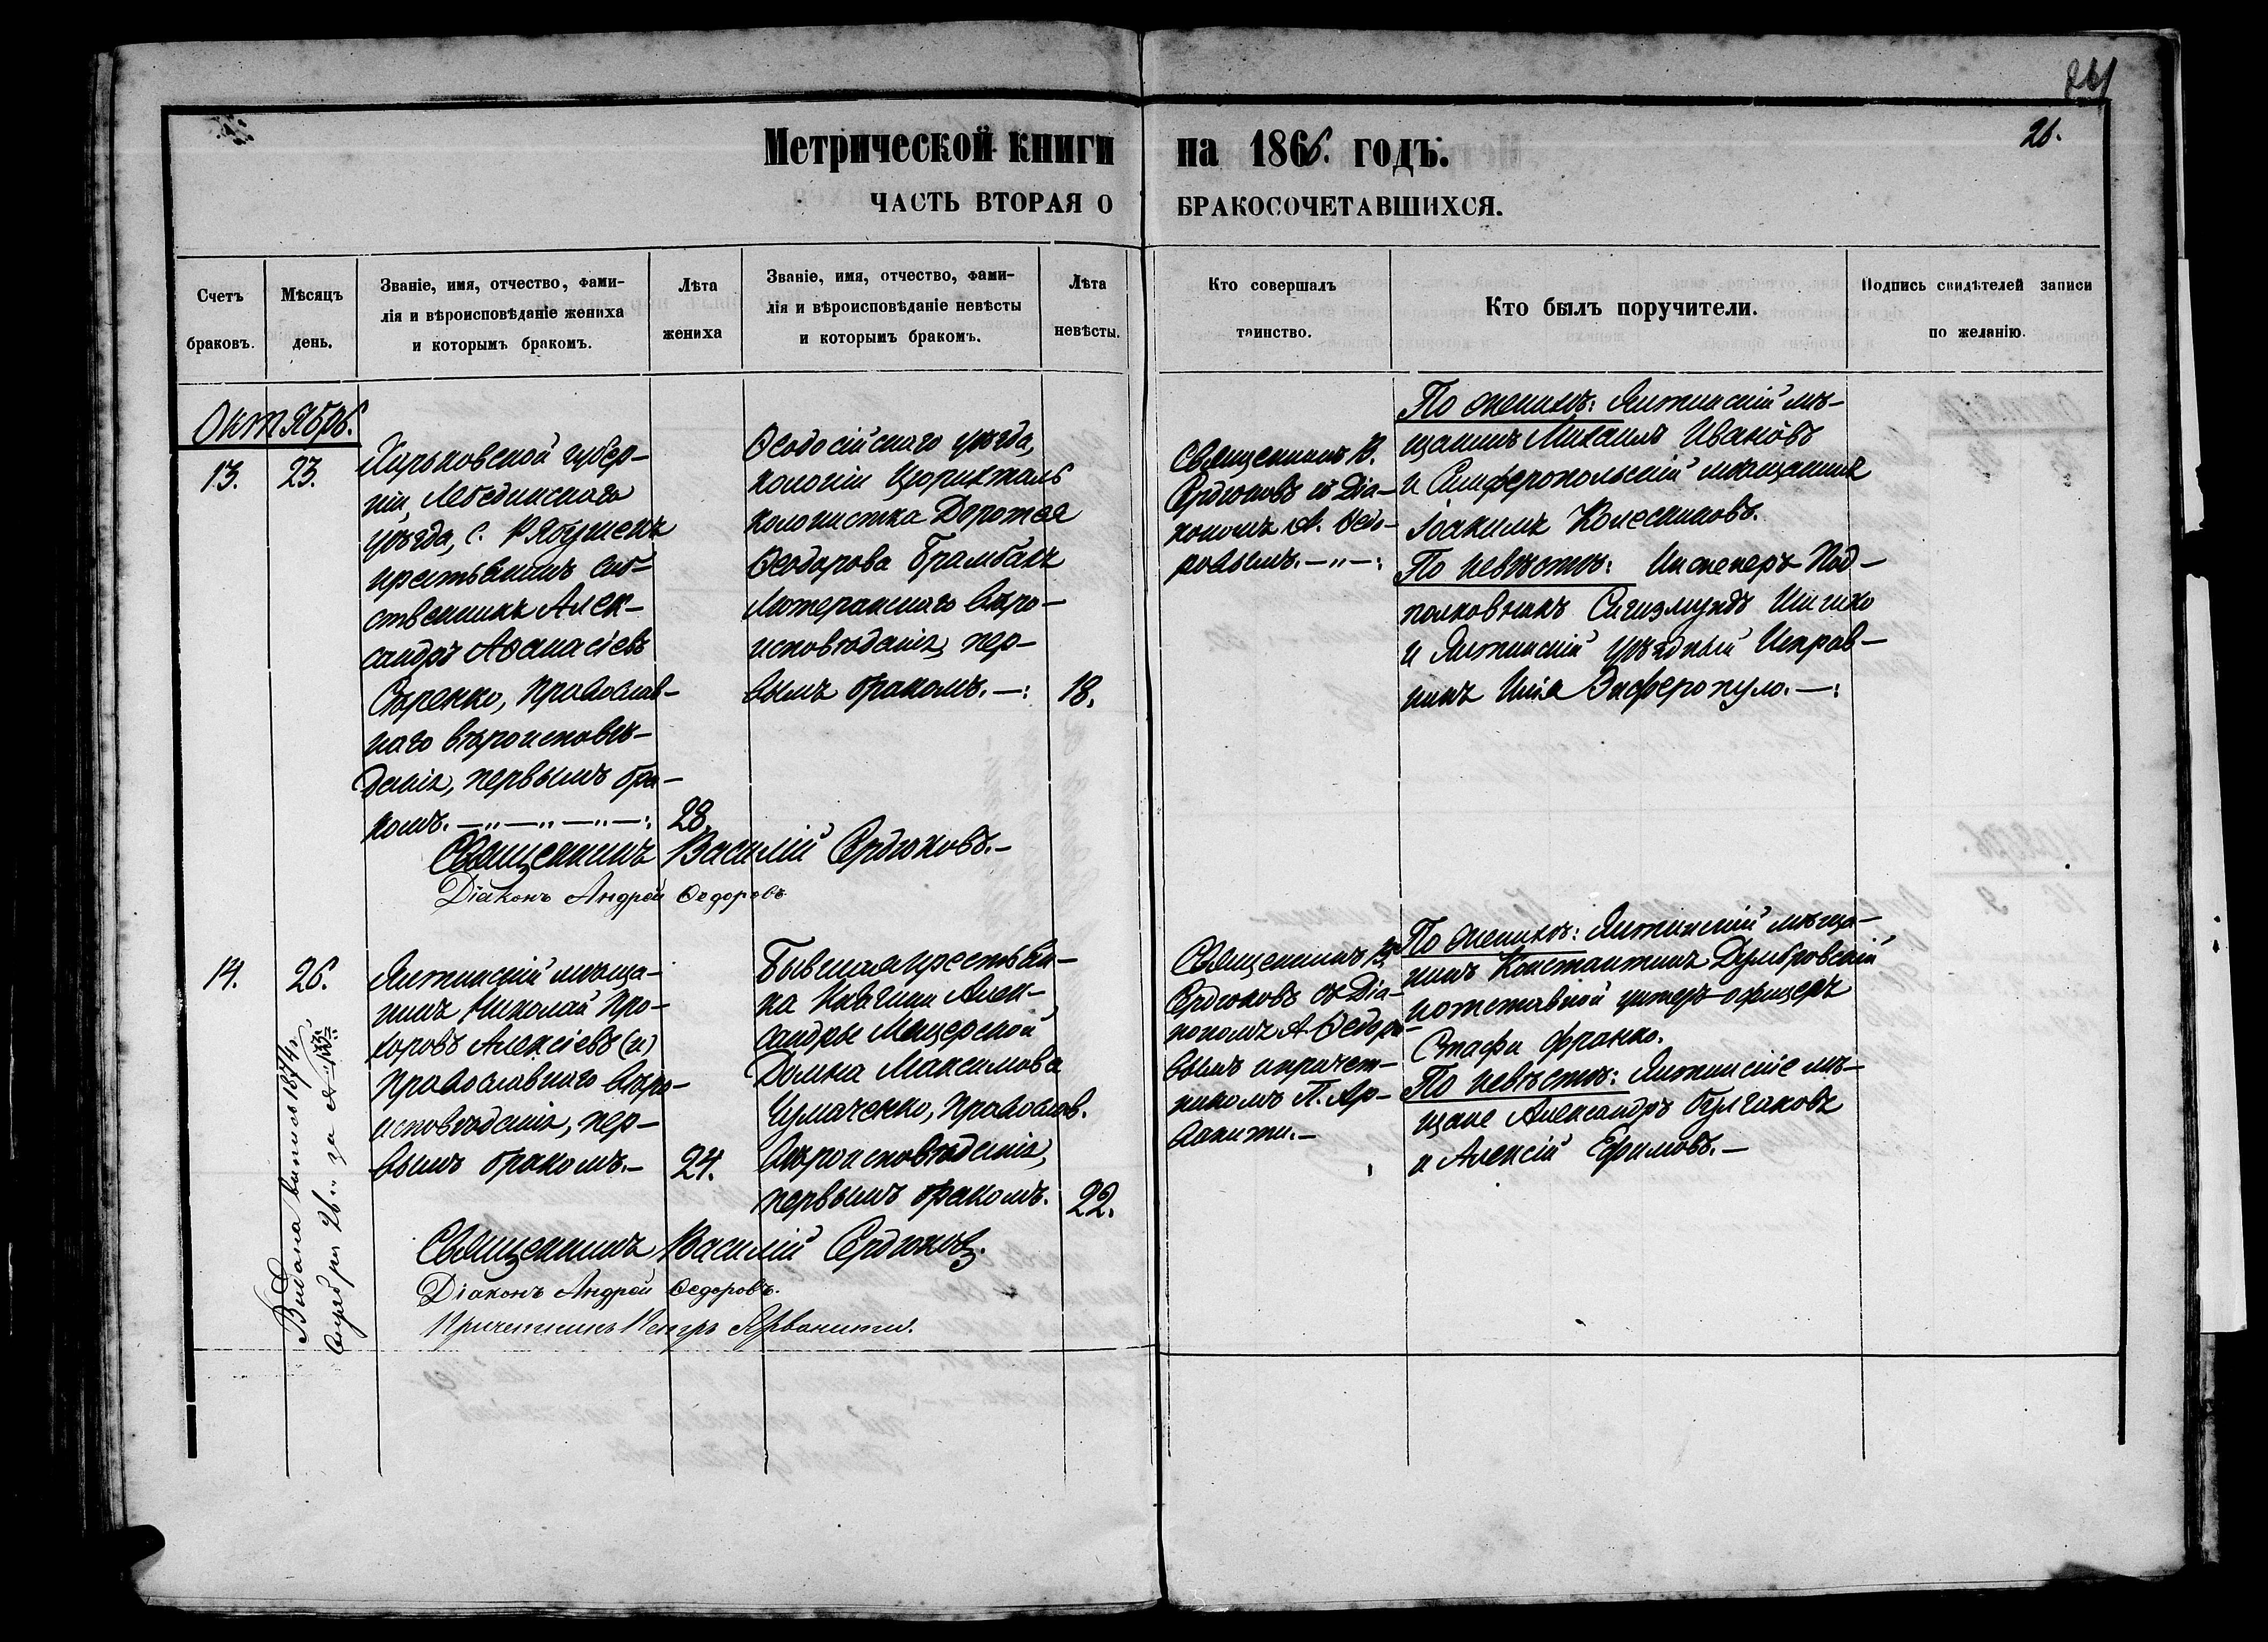 26.
Метрической книги на 1866. годъ.
ЧАСТЬ ВТОРАЯ О БРАКОСОЧЕТАВШИХСЯ.
Счетъ
браковъ.
Мѣсяцъ
день.
Званіе, имя, отчество, фами-
лія и вѣроисповѣданіе жениха
и которымъ бракомъ.
Лѣта
жениха
Званіе, имя, отчество, фами-
лія и вѣроисповѣданіе невѣсты
и которымъ бракомъ.
Лѣта
невѣсты.
Кто совершалъ
таинство.
Кто былъ поручители.
Подпись свидѣтелей записи
по желанію.
Октябрь.
13.
23.
Харьковской губер-
ніи, Лебединскаго
уѣзда, с. Рябушекъ
крестьянинъ соб-
ственникъ Алек-
сандръ Аѳанасіевъ
Сѣренко, Православ-
наго вѣроисповѣ-
данія, первымъ бра-
комъ. —„—„—„—:
28.
Ѳеодосійскаго уѣзда,
колоніи Цюрихталь
колонистка Доротея
Ѳеодорова Брамбахъ
Лютеранскаго вѣро-
исповѣданія, пер-
вымъ бракомъ. —:
18.
Священникъ В.
Сердюковъ съ Діа-
кономъ А. Ѳедо-
ровымъ. —„—:
По женихѣ: Ялтинскій мѣ-
щанинъ Михаилъ Ивановъ
и Симферопольскій мѣщанинъ
Іоакимъ Колесниковъ.
По невѣстѣ: Инженеръ-Под-
полковникъ Сигизмундъ Шишко
и Ялтинскій уѣздный Исправ-
никъ Илія Зеферопуло. —:
Священникъ Василій Сердюковъ. —
Діаконъ Андрей Ѳедоровъ
14.
26.
Выдана выпись 1874 г.
за №
Ялтинскій мѣща-
нинъ Николай Про-
хоровъ Алексіевъ (и)
Православнаго вѣро-
исповѣданія, пер-
вымъ бракомъ. —
24.
Бывшая крестьян-
ка Княгини Алек-
сандры Мещерской
Домна Максимова
Чумаченко, Православ.
вѣроисповѣданія,
первымъ бракомъ.
22.
Священникъ В.
Сердюковъ съ Діа-
кономъ А. Ѳедоро-
вымъ и причет-
никомъ П. Ар-
ванити. —
По женихѣ: Ялтинскій мѣща-
нинъ Константинъ Думбровскій
и отставной унтеръ-офицеръ
Стафи Франко.
По невѣстѣ: Ялтинскіе мѣ-
щане Александръ Булгаковъ
и Алексій Ефимовъ. —
Священникъ Василій Сердюковъ.
Діаконъ Андрей Ѳедоровъ.
Причетникъ Петръ Арванити.